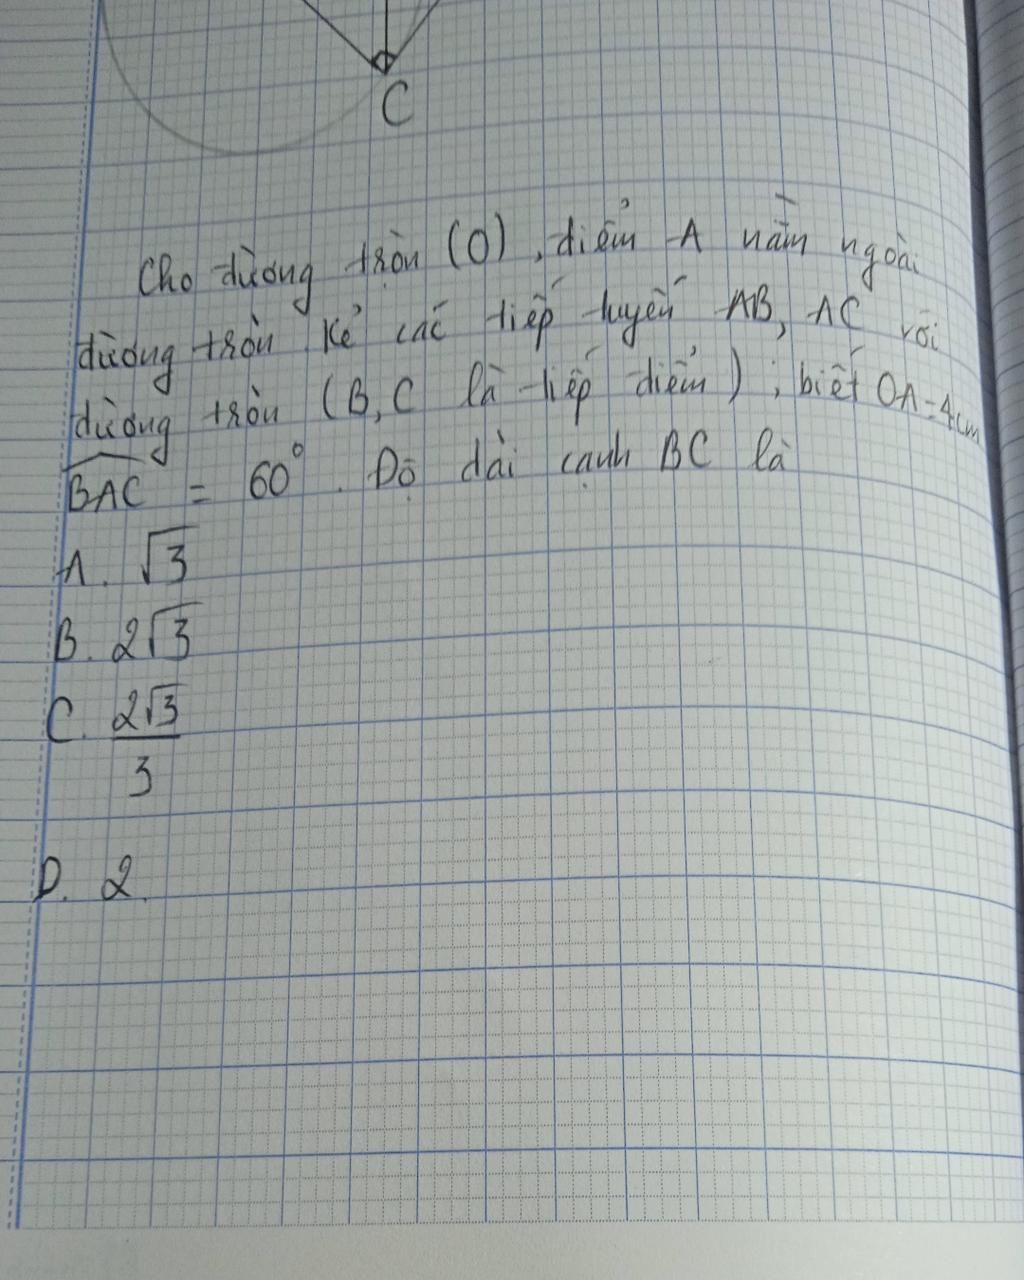 C
Cho đường tròn (O), điểm A nằm ngoài
đường tròn kẻ các tiếp tuyến AB, AC với
đường tròn (B, C là tiếp điểm), biết OA = 4cm
BAC = 60°. Độ dài cạnh BC là
A. √3
B. 2√3
C. 2√3/3
D. 2.